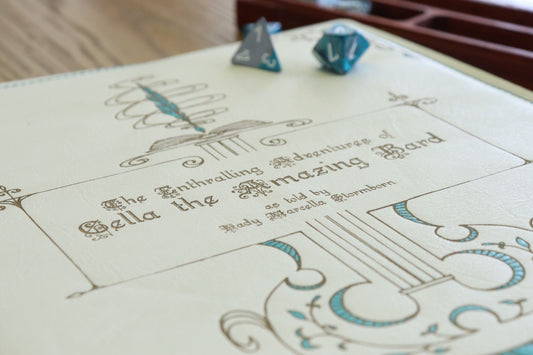 The Enthralling Adventures of
Cella the Amazing Bard
as told by
Lady Marcella Stormborn